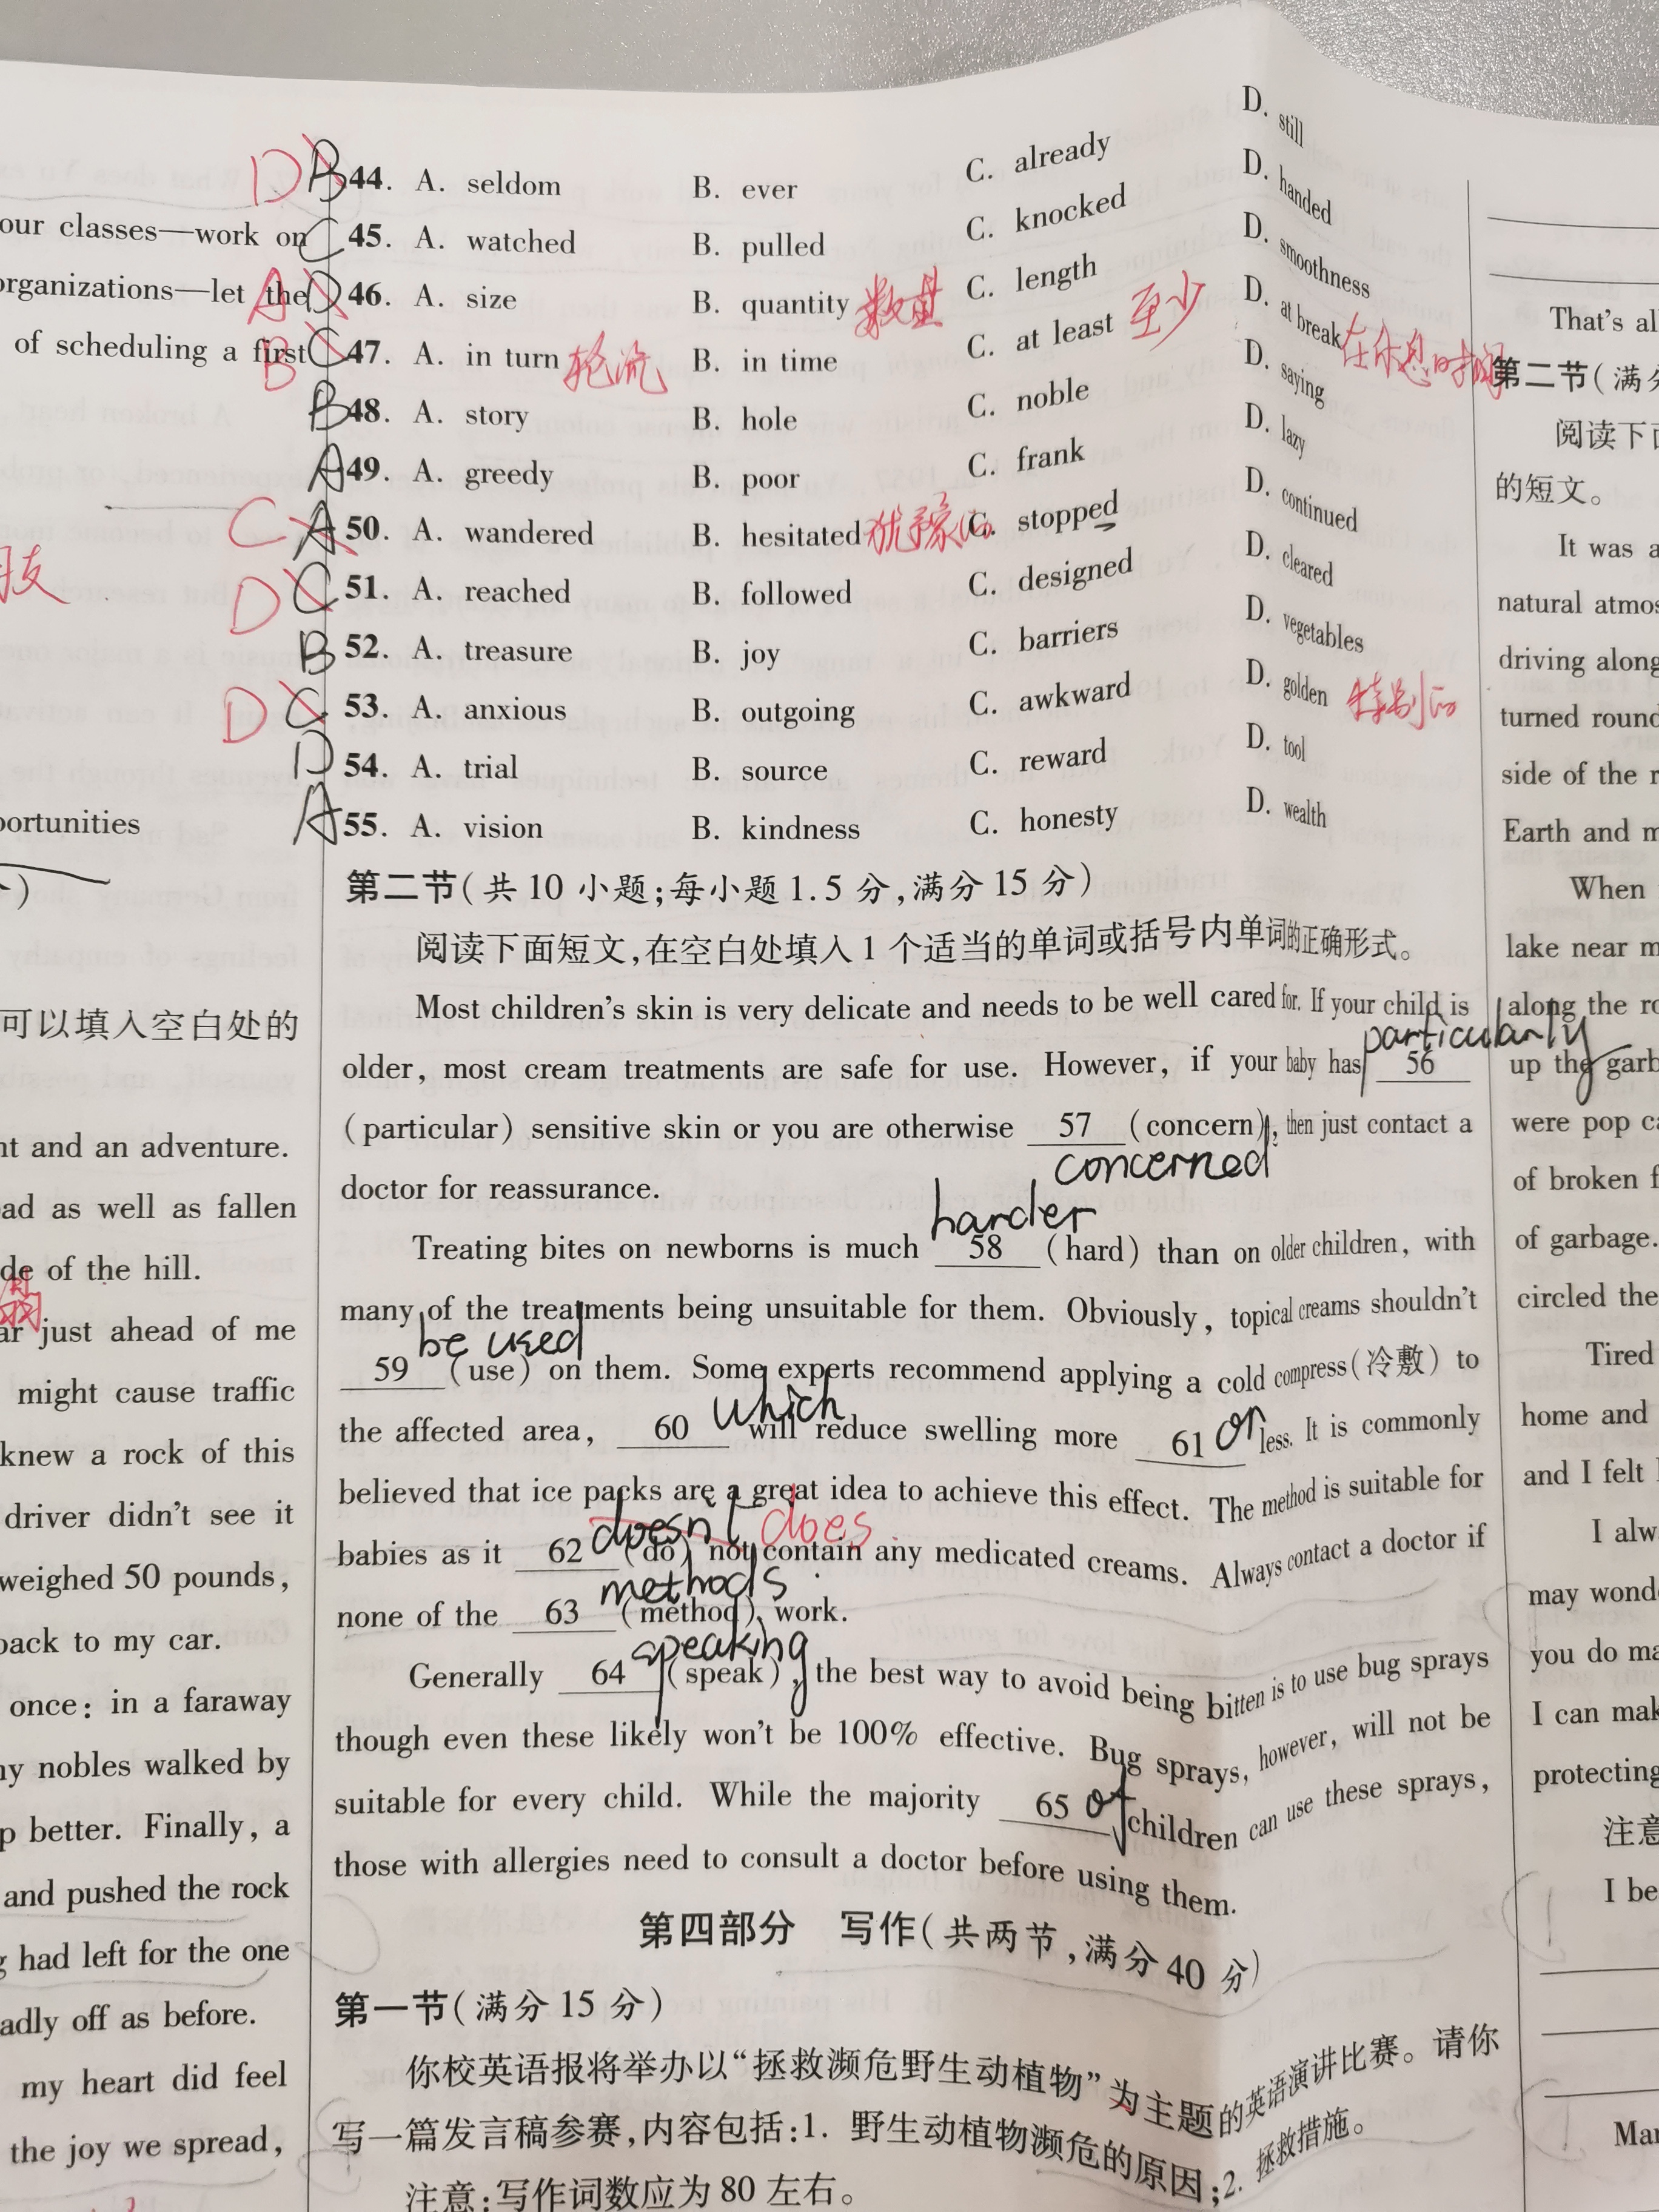 our classes—work on
organizations—let the
of scheduling a first
portunities
可以填入空白处的
nt and an adventure.
ad as well as fallen
de of the hill.
ar just ahead of me
might cause traffic
knew a rock of this
driver didn't see it
weighed 50 pounds,
back to my car.
once: in a faraway
ny nobles walked by
p better. Finally, a
and pushed the rock
g had left for the one
adly off as before.
my heart did feel
the joy we spread,
D B 44. A. seldom B. ever C. already D. still
C 45. A. watched B. pulled C. knocked D. handed
A D 46. A. size B. quantity 数量 C. length D. smoothness
B C 47. A. in turn 轮流 B. in time C. at least 至少 D. at break 在休息时间
B 48. A. story B. hole C. noble D. saying
A 49. A. greedy B. poor C. frank D. lazy
C A 50. A. wandered B. hesitated 犹豫的 C. stopped D. continued
D C 51. A. reached B. followed C. designed D. cleared
B 52. A. treasure B. joy C. barriers D. vegetables
D C 53. A. anxious B. outgoing C. awkward D. golden 特别的
D 54. A. trial B. source C. reward D. tool
A 55. A. vision B. kindness C. honesty D. wealth
第二节(共10小题;每小题1.5分,满分15分)
阅读下面短文,在空白处填入1个适当的单词或括号内单词的正确形式。
Most children's skin is very delicate and needs to be well cared for. If your child is
particularly
older, most cream treatments are safe for use. However, if your baby has 56
(particular) sensitive skin or you are otherwise 57 (concern), then just contact a
concerned
doctor for reassurance.
harder
Treating bites on newborns is much 58 (hard) than on older children, with
many of the treatments being unsuitable for them. Obviously, topical creams shouldn't
be used
59 (use) on them. Some experts recommend applying a cold compress(冷敷) to
which or
the affected area, 60 will reduce swelling more 61 less. It is commonly
believed that ice packs are a great idea to achieve this effect. The method is suitable for
doesn't does
babies as it 62 (do) not contain any medicated creams. Always contact a doctor if
methods
none of the 63 (method) work.
speaking
Generally 64 (speak), the best way to avoid being bitten is to use bug sprays
though even these likely won't be 100% effective. Bug sprays, however, will not be
suitable for every child. While the majority 65 of children can use these sprays,
those with allergies need to consult a doctor before using them.
第四部分 写作(共两节,满分40分)
第一节(满分15分)
你校英语报将举办以“拯救濒危野生动植物”为主题的英语演讲比赛。请你
写一篇发言稿参赛,内容包括:1. 野生动植物濒危的原因;2. 拯救措施。
注意:写作词数应为80左右。
That's al
第二节(满分
阅读下
的短文。
It was a
natural atmos
driving along
turned round
side of the r
Earth and m
When
lake near m
along the ro
up the garb
were pop ca
of broken f
of garbage.
circled the
Tired
home and
and I felt
I alw
may wonde
you do ma
I can mak
protecting
注意
I be
Mar